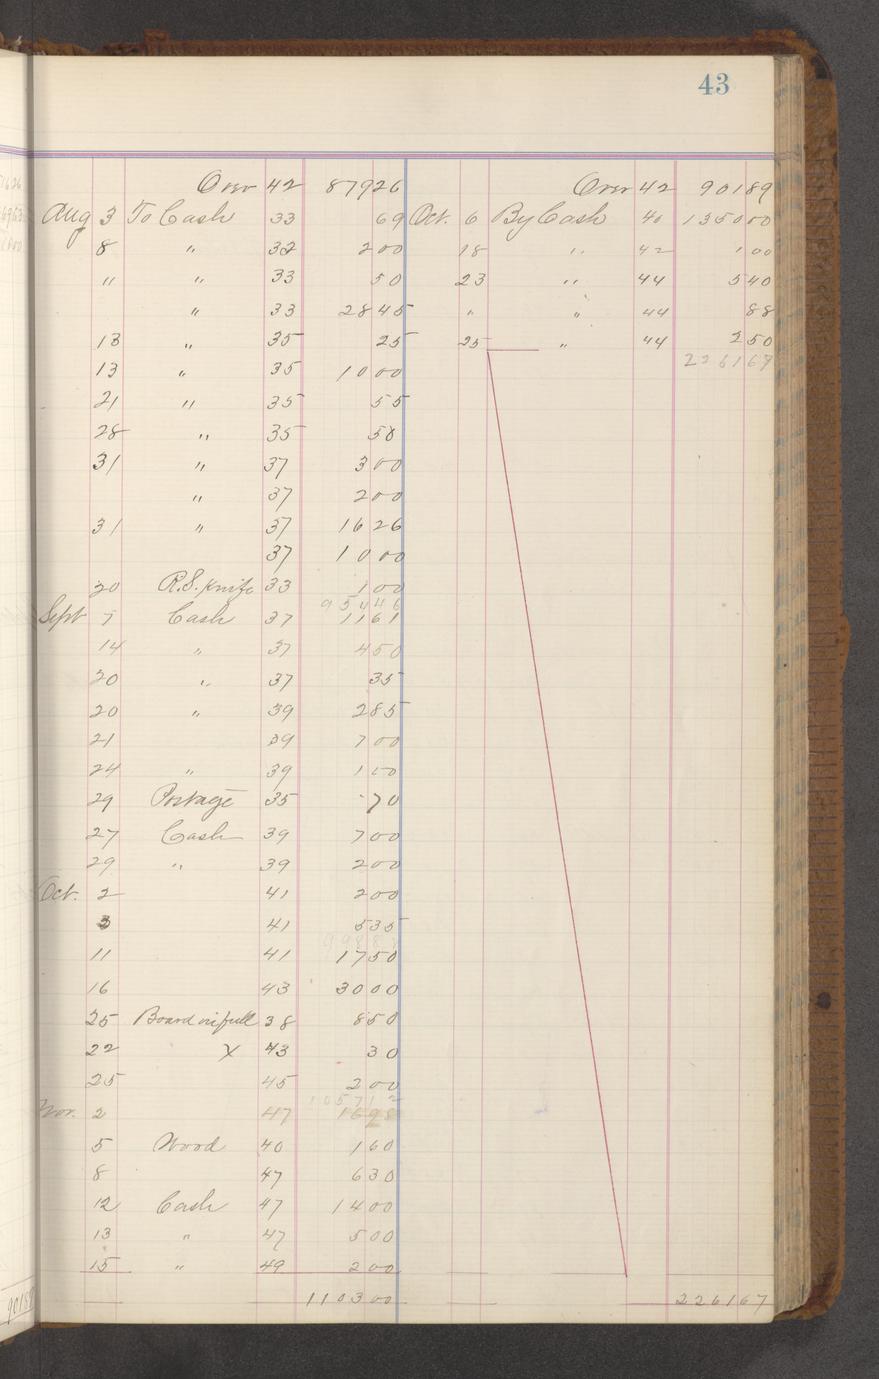 43
Over 42 87926
Aug 3 To Cash 33 69
8 " 32 200
" " 33 50
" 33 2845
13 " 35 25
13 " 35 1000
21 " 35 55
28 " 35 58
31 " 37 300
" 37 200
31 " 37 1626
37 1000
20 R.S. Knife 33 100
95446
Sept 7 Cash 37 1161
14 " 37 450
20 " 37 35
20 " 39 285
21 39 700
24 " 39 150
29 Postage 35 70
27 Cash 39 700
29 " 39 200
Oct. 2 41 200
3 41 535
11 41 1750
16 43 3000
25 Board in full 38 850
22 X 43 30
25 45 200
105712
Nov. 2 47 1698
5 Wood 40 160
8 47 630
12 Cash 47 1400
13 " 47 500
15 " 49 200
110300
Over 42 90189
Oct. 6 By Cash 40 135000
18 " 42 100
23 " 44 540
" " 44 88
25 " 44 250
226167
226167